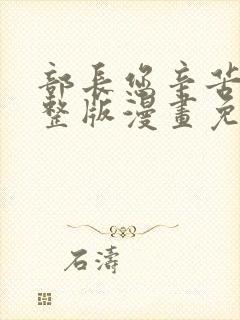 部長您辛苦
整版漫畫免
石濤